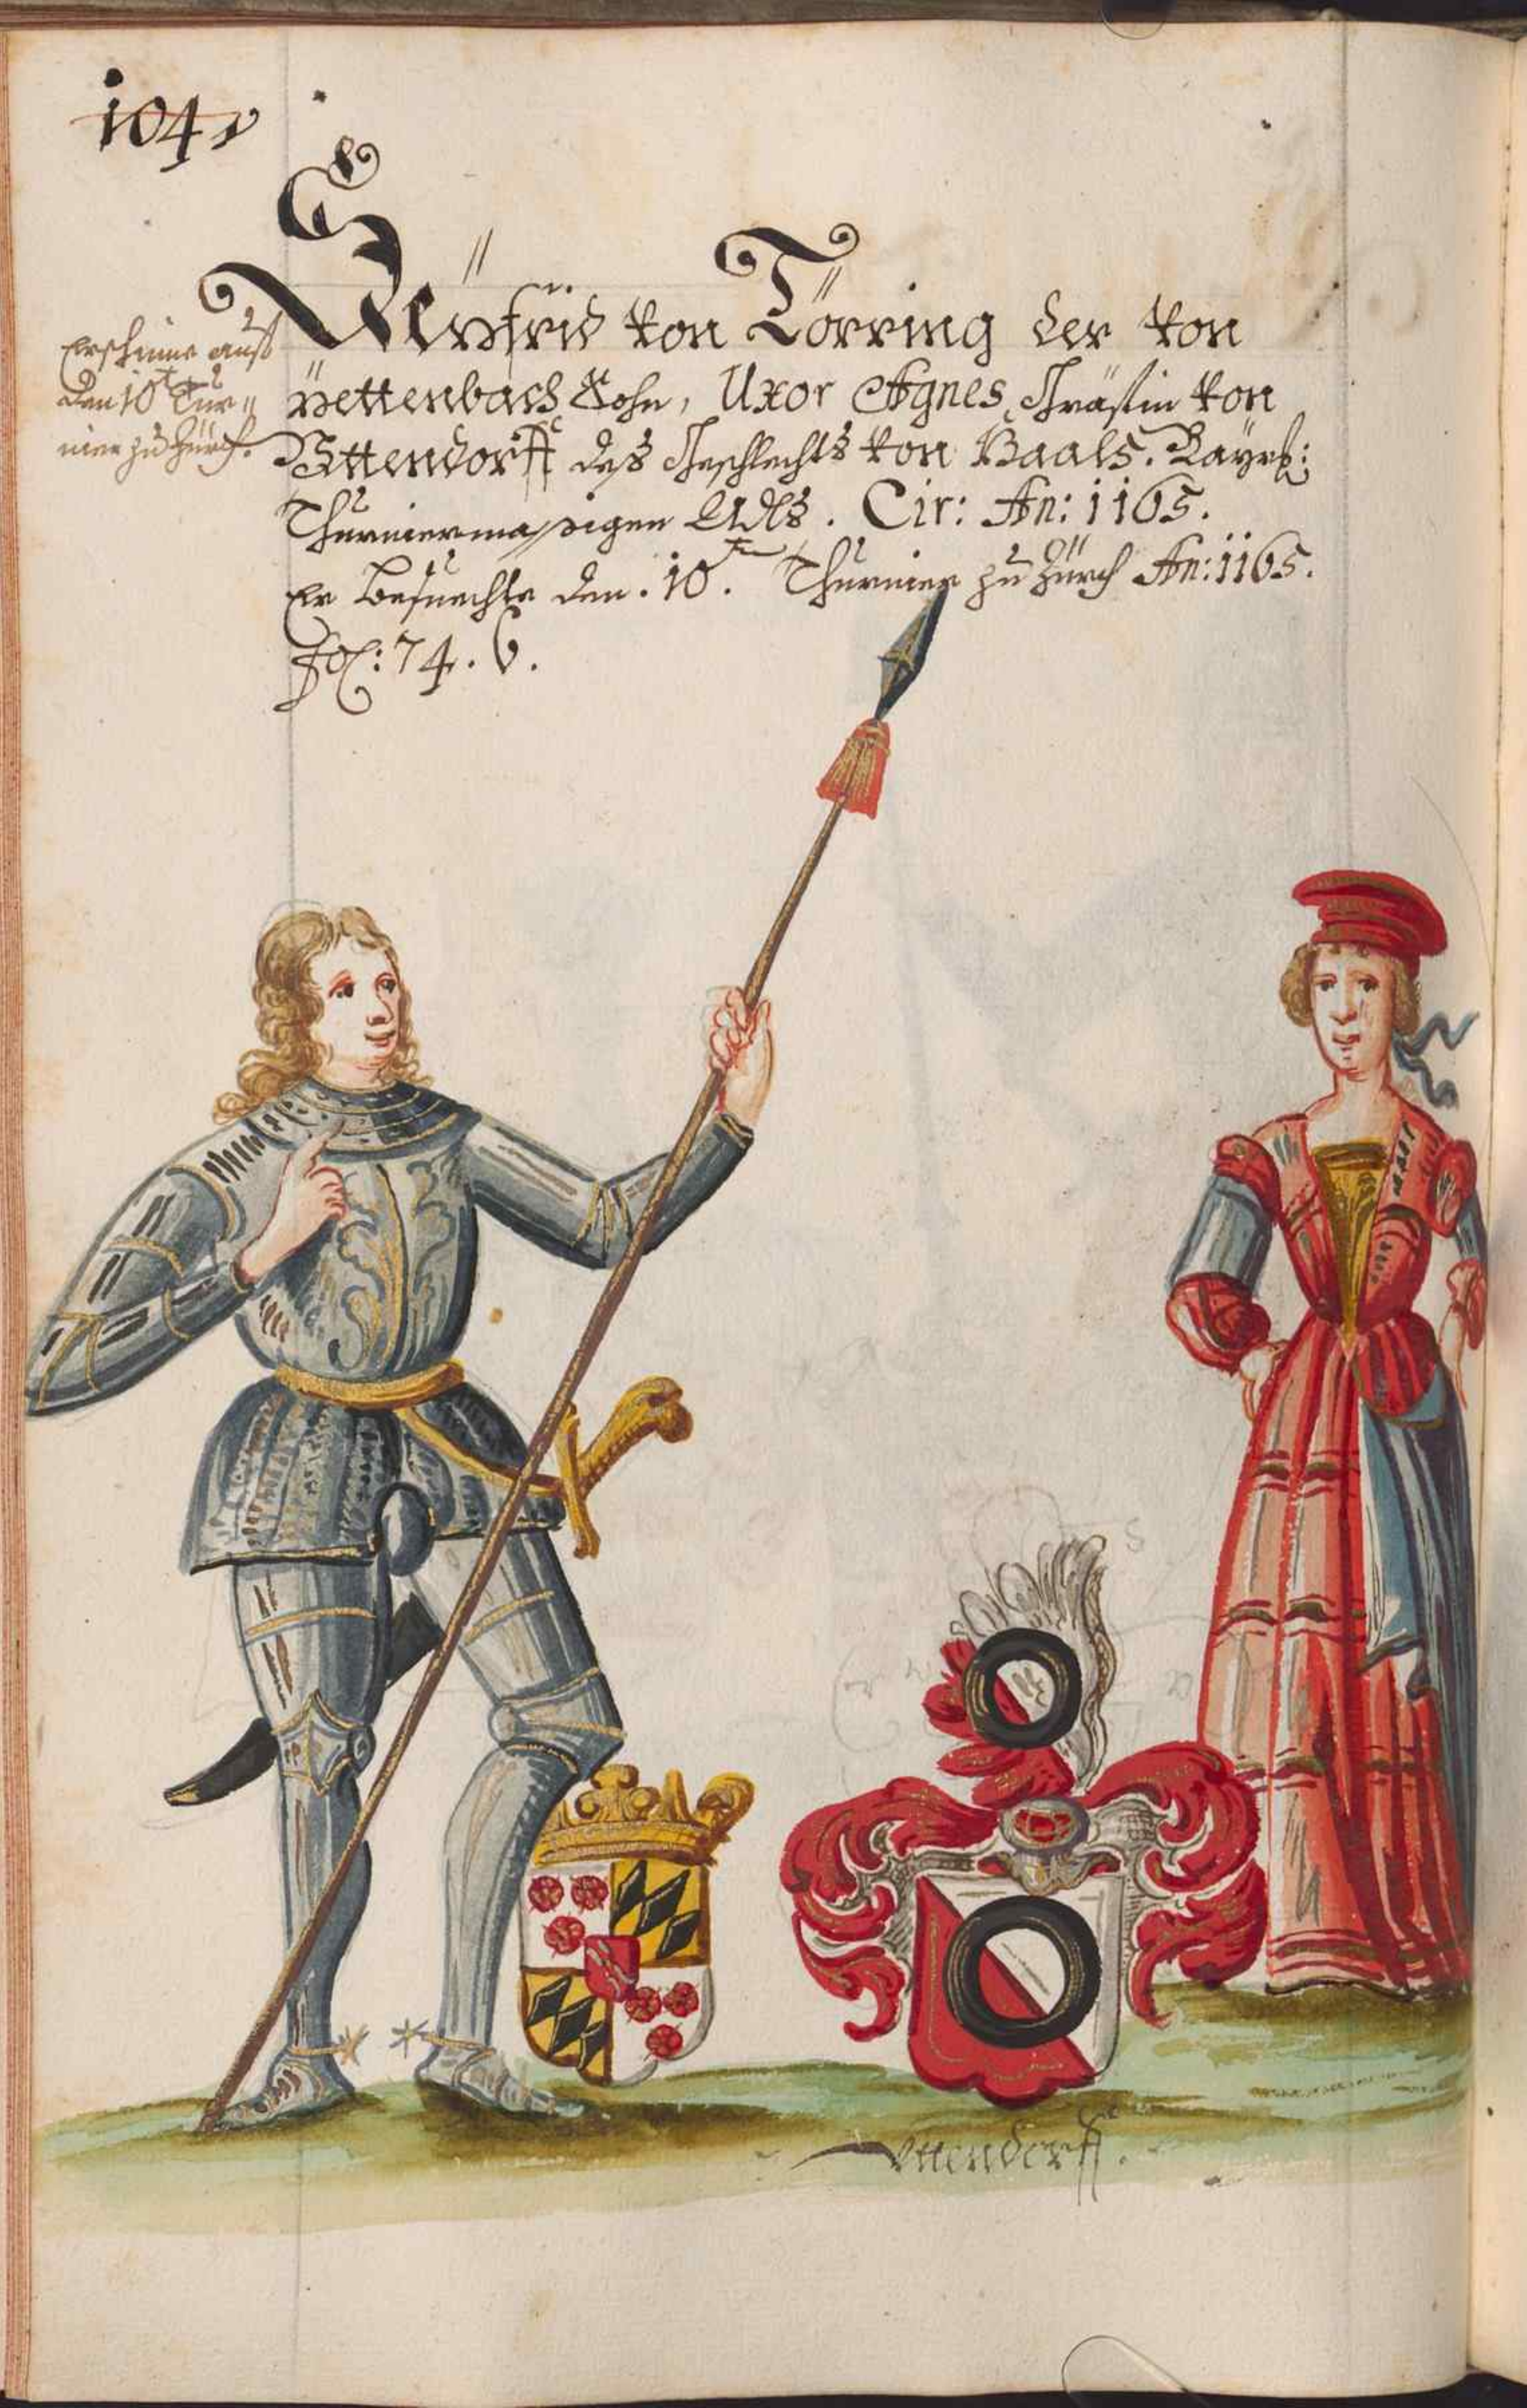 104
Erscheint auff
den 10t Tur=
nier zu Zürch.
Seÿfrid von Törring der von
Pettenbach Sohn, Uxor Agnes Gräfin von
Uttendorff des Geschlechts von Baabs. Bayrs:
Thurniermässigen Adls. Cir: An: 1165.
Er besuechte den. 10. ten Thurnier zu Zürch An: 1165.
Fol: 74. 6.
Uttendorff.